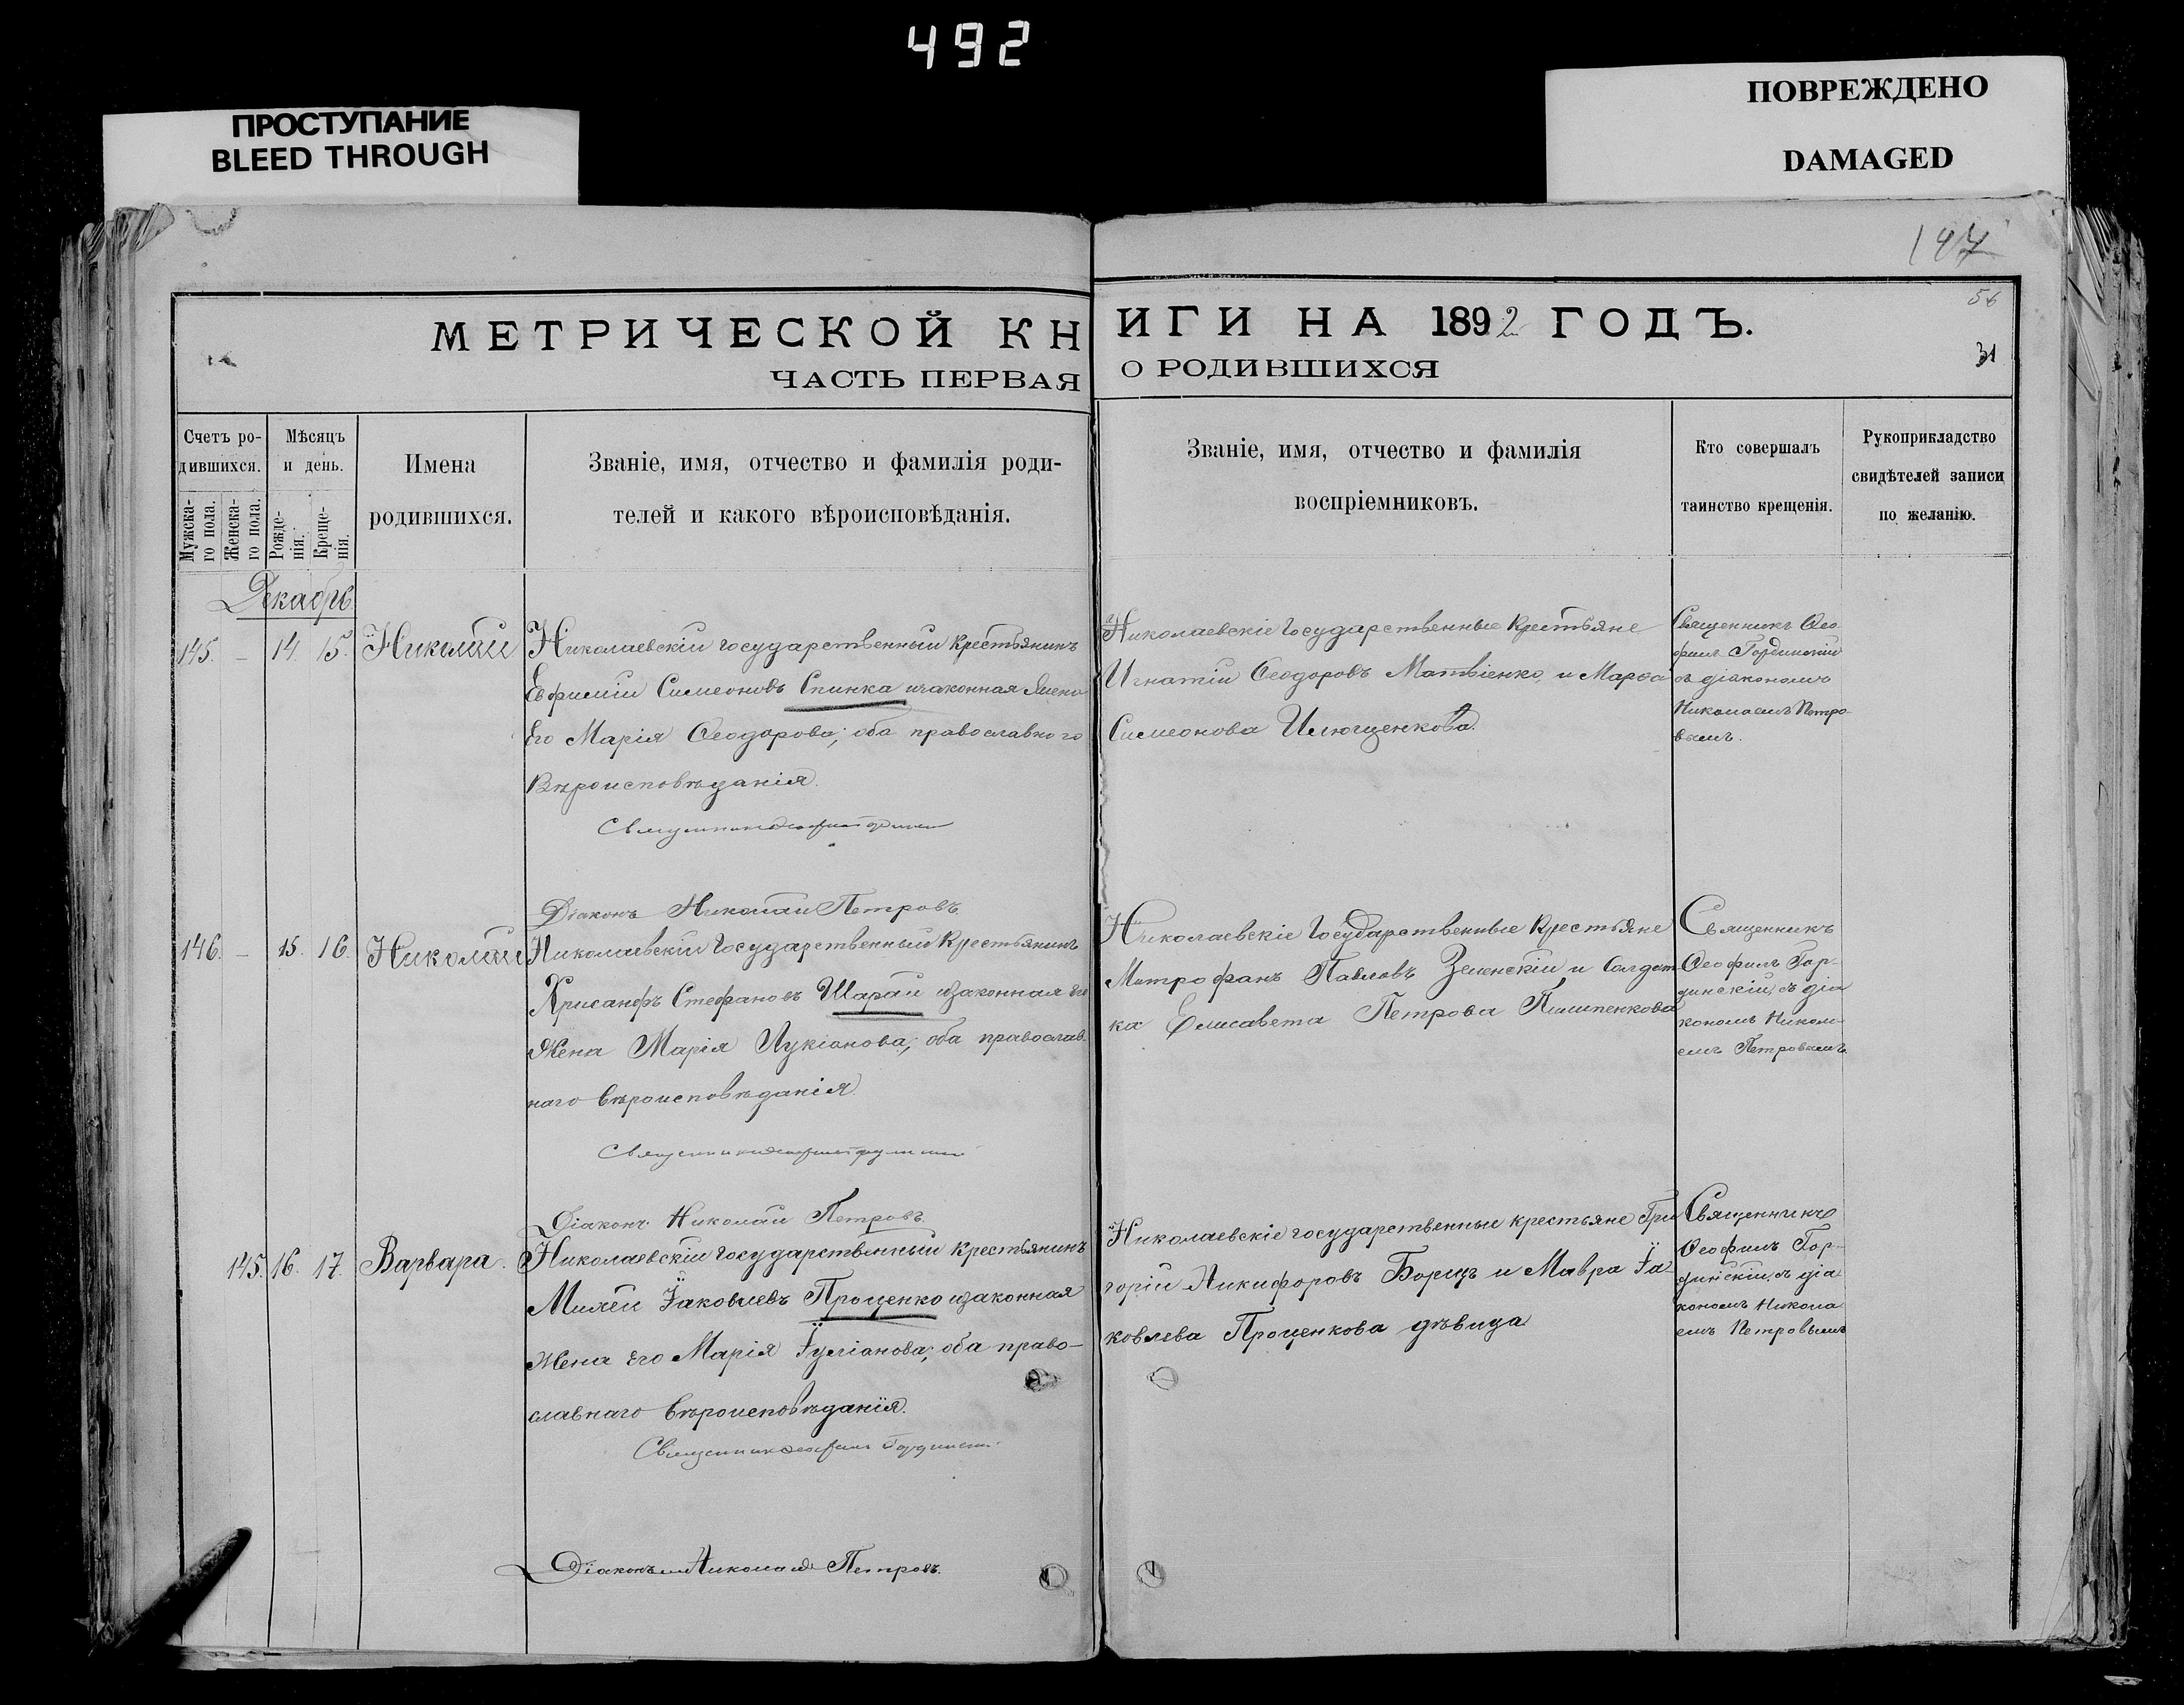 492
ПРОСТУПАНИЕ
BLEED THROUGH
ПОВРЕЖДЕНО
DAMAGED
147
56
31
МЕТРИЧЕСКОЙ КНИГИ НА 1892 ГОДЪ.
ЧАСТЬ ПЕРВАЯ О РОДИВШИХСЯ
Счетъ ро-
дившихся.
Мужска-
го пола.
Женска-
го пола.
Мѣсяцъ
и день.
Рожде-
нія.
Креще-
нія.
Имена
родившихся.
Званіе, имя, отчество и фамилія роди-
телей и какого вѣроисповѣданія.
Званіе, имя, отчество и фамилія
воспріемниковъ.
Кто совершалъ
таинство крещенія.
Рукоприкладство
свидѣтелей записи
по желанію.
Декабрь
145. – 14. 15. Николай
Николаевскій государственный крестьянинъ
Евфимій Симеоновъ Спинка и законная жена
Его Марія Ѳеодорова; оба православного
Вѣроисповѣданія.
Діаконъ Николай Петровъ.
Николаевскіе Государственные Крестьяне
Игнатій Ѳеодоровъ Матвіенко, и Марѳа
Симеонова Илющенкова.
Священникъ Ѳео-
филъ Гординскій
съ діакономъ
Николаемъ Петро-
вымъ.
146. – 15. 16. Николай
Николаевскій Государственный Крестьянинъ
Хрисанфъ Стефановъ Шарай и законная Его
Жена Марія Лукіанова; оба православ-
наго вѣроисповѣданія.
Діаконъ Николай Петровъ.
Николаевскіе Государственные Крестьяне
Митрофанъ Павловъ Зеленскій и Солдат-
ка Елисавета Петрова Пилипенкова
Священникъ
Ѳеофилъ Гор-
динскій, съ діа
кономъ Никола-
емъ Петровымъ.
145. 16. 17. Варвара.
Николаевскій Государственный Крестьянинъ
Михей Іаковлевъ Проценко и законная
Жена Его Марія Іуліанова; оба право-
славнаго вѣроисповѣданія.
Священникъ Ѳеофилъ Гординскій
Діаконъ Николай Петровъ.
Николаевскіе государственные крестьяне Гри
горій Никифоровъ Борщъ и Мавра Іа-
ковлева Проценкова дѣвица
Священникъ
Ѳеофилъ Гор-
динскій, съ діа
кономъ Никола
емъ Петровымъ